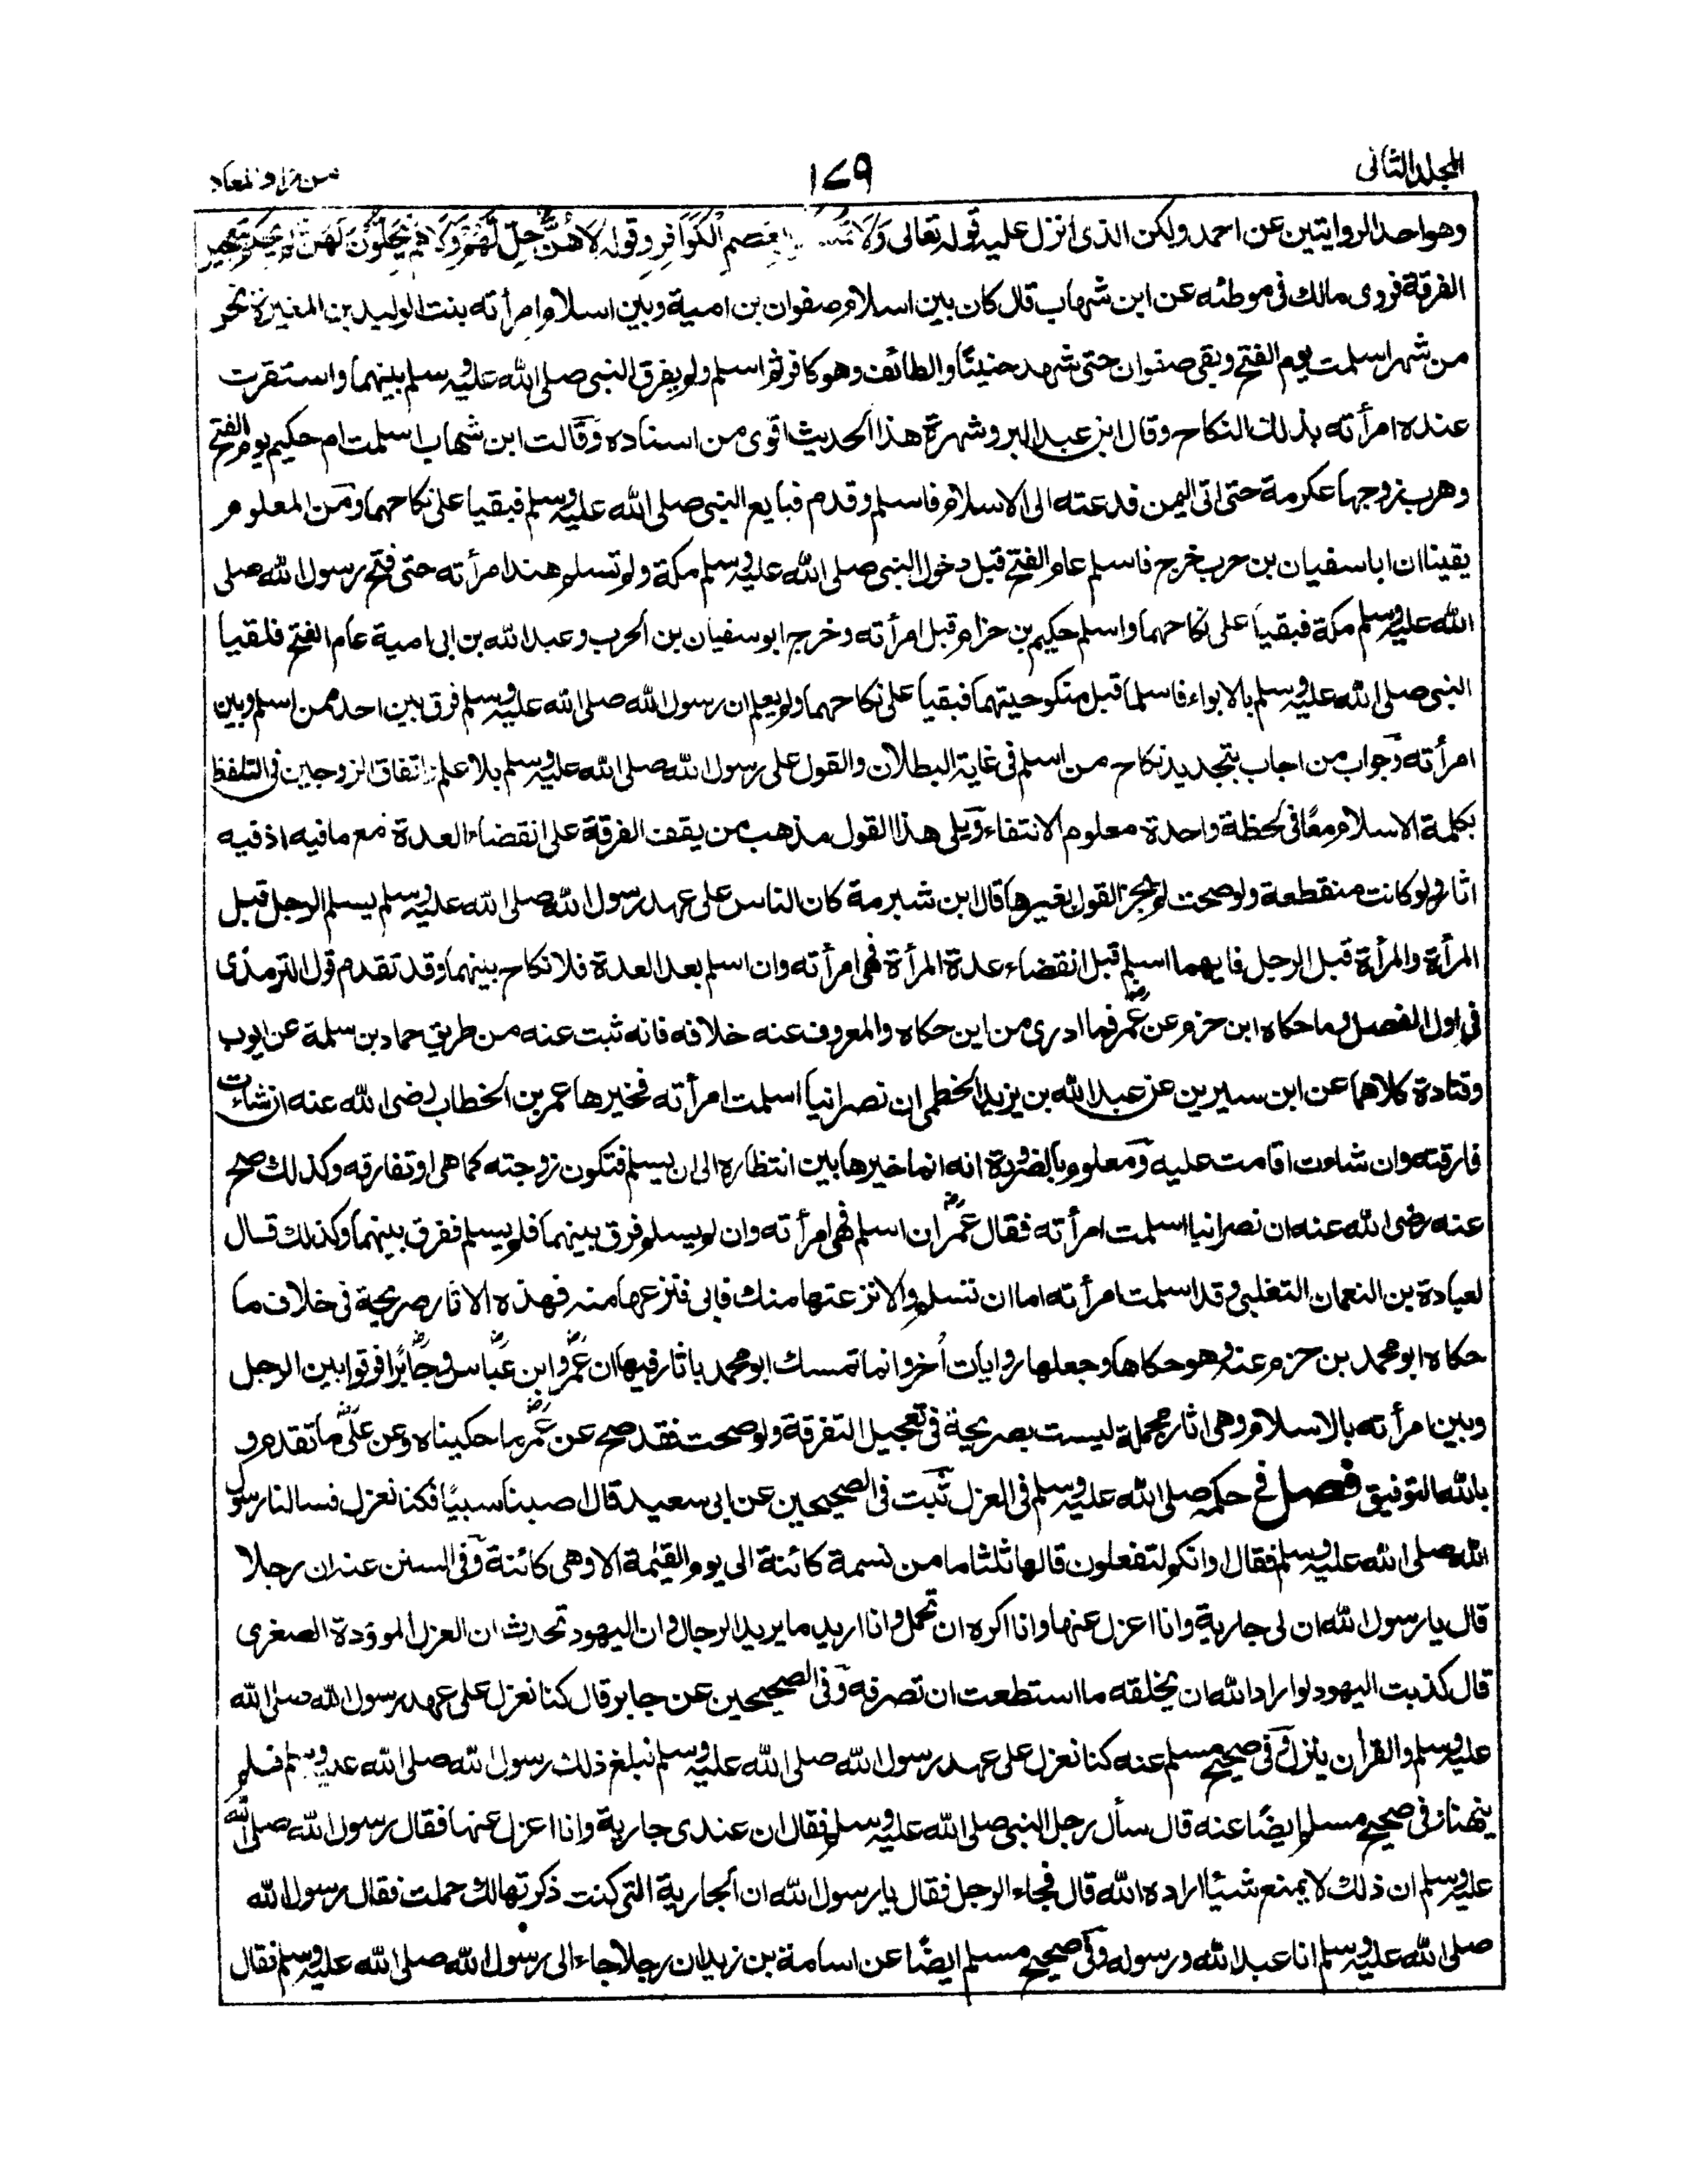 المجلد الثانى
١٧٩
من زاد المعاد
وهو احد الروايتين عن احمد ولكن الذى انزل عليه قوله تعالى وَلَا بِعِصَمِ الْكَوَافِرِ وقوله لَا هُنَّ حِلٌّ لَّهُمْ وَلَا هُمْ يَحِلُّونَ لَهُنَّ
الفرقة فروى مالك فى موطئه عن ابن شهاب قال كان بين اسلام صفوان بن امية وبين اسلام امرأته بنت الوليد بن المغيرة نحو
من شهر اسلمت يوم الفتح وبقى صفوان حتى شهد حنينًا والطائف وهو كافر ثم اسلم ولم يفرق النبى صلى الله عليه وسلم بينهما واستقرت
عنده امرأته بذلك النكاح وقال ابن عبد البر وشهرة هذا الحديث اقوى من اسناده وقالت ابن شهاب اسلمت ام حكيم يوم الفتح
وهرب زوجها عكرمة حتى اتى اليمن فدعته الى الاسلام فاسلم وقدم فبايع النبى صلى الله عليه وسلم فبقيا على نكاحهما ومن المعلوم
يقينا ان ابا سفيان بن حرب خرج فاسلم عام الفتح قبل دخول النبى صلى الله عليه وسلم مكة ولم تسلم هند امرأته حتى فتح رسول الله صلى
الله عليه وسلم مكة فبقيا على نكاحهما واسلم حكيم بن حزام قبل امرأته وخرج ابو سفيان بن الحرب وعبد الله بن ابى امية عام الفتح فلقيا
النبى صلى الله عليه وسلم بالابواء فاسلما قبل منكوحيتهما فبقيا على نكاحهما ولم يعلم ان رسول الله صلى الله عليه وسلم فرق بين احد ممن اسلم وبين
امرأته وجواب من اجاب بتجديد نكاح من اسلم فى غاية البطلان والقول على رسول الله صلى الله عليه وسلم بلا علم واتفاق الزوجين فى التلفظ
بكلمة الاسلام معًا فى لحظة واحدة معلوم الانتفاء ويلى هذا القول مذهب من يقف الفرقة على انقضاء العدة مع ما فيه اذ فيه
اثار ولو كانت منقطعة ولو صحت لم يجز القول بغيرها قال ابن شبرمة كان الناس على عهد رسول الله صلى الله عليه وسلم يسلم الرجل قبل
المرأة والمرأة قبل الرجل فايهما اسلم قبل انقضاء عدة المرأة فهى امرأته وان اسلم بعد العدة فلا نكاح بينهما وقد تقدم قول الترمذى
فى اول الفصل وما حكاه ابن حزم عن عمر فما ادرى من اين حكاه والمعروف عنه خلافه فانه ثبت عنه من طريق حماد بن سلمة عن ايوب
وقتادة كلاهما عن ابن سيرين عن عبد الله بن يزيد الخطمى ان نصرانيا اسلمت امرأته فخيرها عمر بن الخطاب رضى الله عنه ان شاءت
فارقته وان شاءت اقامت عليه ومعلوم بالضرورة انه انما خيرها بين انتظاره الى ان يسلم فتكون زوجته كما هى او تفارقه وكذلك صح
عنه رضى الله عنه ان نصرانيا اسلمت امرأته فقال عمر ان اسلم فهى امرأته وان لم يسلم فرق بينهما فلم يسلم ففرق بينهما وكذلك قال
لعبادة بن النعمان التغلبى وقد اسلمت امرأته اما ان تسلم والا نزعتها منك فابى فنزعها منه فهذه الاثار صريحة فى خلاف ما
حكاه ابو محمد بن حزم عنه وهو حكاها وجعلها روايات أخر وانما تمسك ابو محمد باثار فيها ان عمر وابن عباس وجابرًا فرقوا بين الرجل
وبين امرأته بالاسلام وهى اثار مجملة ليست بصريحة فى تعجيل التفرقة ولو صحت فقد صح عن عمر ما حكيناه وعن على ما تقدم و
بالله التوفيق فصل فى حكمه صلى الله عليه وسلم فى العزل ثبت فى الصحيحين عن ابى سعيد قال اصبنا سبيًا فكنا نعزل فسالنا رسول
الله صلى الله عليه وسلم فقال اوانكم لتفعلون قالها ثلثا ما من نسمة كائنة الى يوم القيمة الا وهى كائنة وفى السنن عنه ان رجلا
قال يا رسول الله ان لى جارية وانا اعزل عنها وانا اكره ان تحمل وانا اريد ما يريد الرجال وان اليهود تحدث ان العزل الموؤدة الصغرى
قال كذبت اليهود لو اراد الله ان يخلقه ما استطعت ان تصرفه وفى الصحيحين عن جابر قال كنا نعزل على عهد رسول الله صلى الله
عليه وسلم والقرأن ينزل وفى صحيح مسلم عنه كنا نعزل على عهد رسول الله صلى الله عليه وسلم فبلغ ذلك رسول الله صلى الله عليه وسلم فلم
ينهنا وفى صحيح مسلم ايضًا عنه قال سأل رجل النبى صلى الله عليه وسلم فقال ان عندى جارية وانا اعزل عنها فقال رسول الله صلى الله
عليه وسلم ان ذلك لا يمنع شيئا اراده الله قال فجاء الرجل فقال يا رسول الله ان الجارية التى كنت ذكرتها لك حملت فقال رسول الله
صلى الله عليه وسلم انا عبد الله ورسوله وفى صحيح مسلم ايضًا عن اسامة بن زيد ان رجلا جاء الى رسول الله صلى الله عليه وسلم فقال